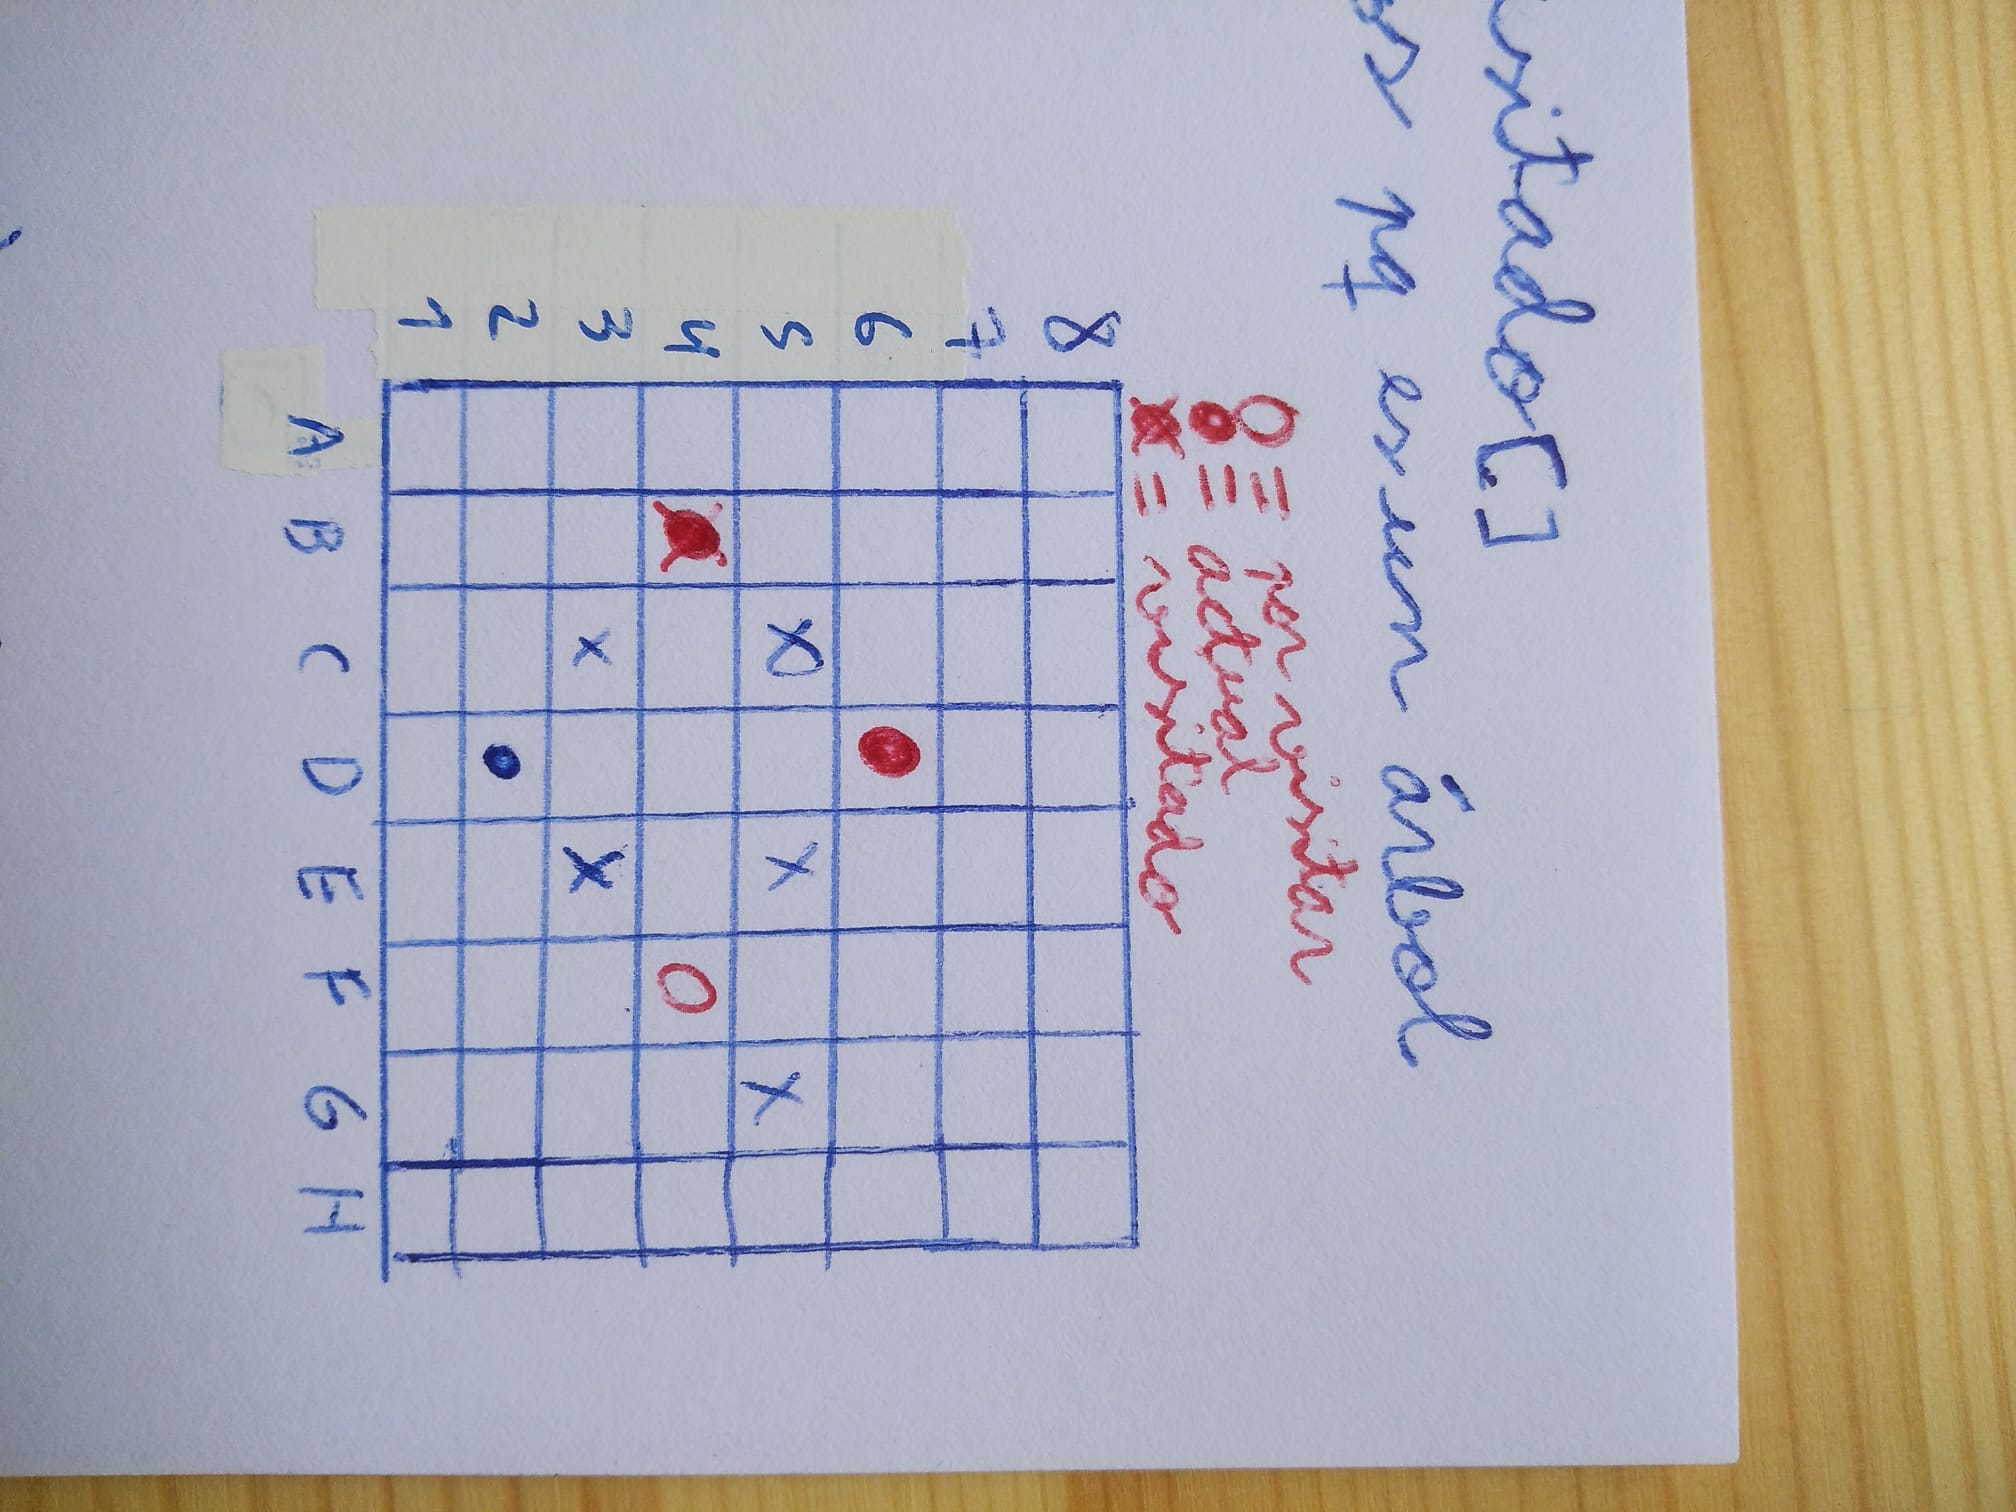 isitado[]
os pq es un árbol
O = por visitar
● = actual
= visitado
8
7
6
5 X X X
4 O
3 X X
2
1
A B C D E F G H